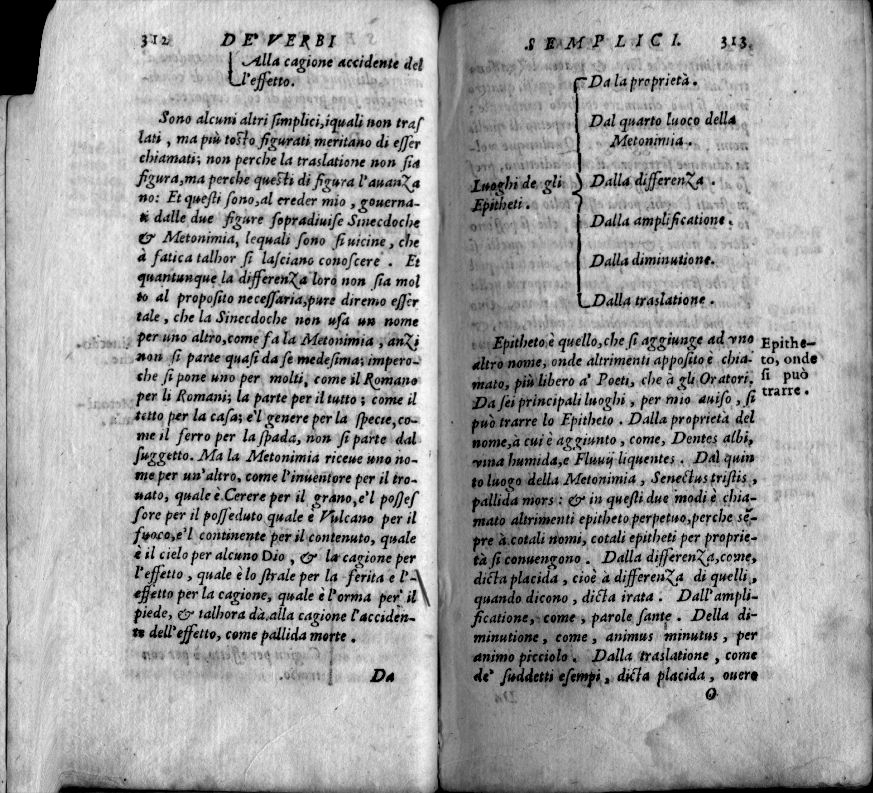 312 DE' VERBI
Alla cagione accidente del
l'effetto.
Sono alcuni altri simplici, iquali non tras
lati, ma più tosto figurati meritano di esser
chiamati; non perche la traslatione non sia
figura, ma perche questi di figura l'auanza
no: Et questi sono, al creder mio, gouerna-
ti dalle due figure sopradiuise Sinecdoche
& Metonimia, lequali sono si uicine, che
à fatica talhor si lasciano conoscere. Et
quantunque la differenza loro non sia mol
to al proposito necessaria, pure diremo esser
tale, che la Sinecdoche non usa un nome
per uno altro, come fa la Metonimia, anzi
non si parte quasi da se medesima; impero-
che si pone uno per molti, come il Romano
per li Romani; la parte per il tutto; come il
tetto per la casa; e'l genere per la specie, co-
me il ferro per la spada, non si parte dal
suggetto. Ma la Metonimia riceue uno no-
me per un'altro, come l'inuentore per il tro-
uato, quale è Cerere per il grano, e'l posses
sore per il posseduto quale è Vulcano per il
fuoco, e'l continente per il contenuto, quale
è il cielo per alcuno Dio, & la cagione per
l'effetto, quale è lo strale per la ferita e l'-
effetto per la cagione, quale è l'orma per il
piede, & talhora dà alla cagione l'acciden-
te dell'effetto, come pallida morte.
Da
SEMPLICI. 313
Da la proprietà.
Dal quarto luoco della
Metonimia.
Luoghi de gli
Epitheti.
Dalla differenza.
Dalla amplificatione.
Dalla diminutione.
Dalla traslatione.
Epitheto è quello, che si aggiunge ad vno
altro nome, onde altrimenti apposito è chia-
mato, più libero a' Poeti, che à gli Oratori.
Da sei principali luoghi, per mio auiso, si
può trarre lo Epitheto. Dalla proprietà del
nome, à cui è aggiunto, come, Dentes albi,
vina humida, e Fluuij liquentes. Dal quin
to luogo della Metonimia, Senectus tristis,
pallida mors: & in questi due modi è chia-
mato altrimenti epitheto perpetuo, perche sē-
pre à cotali nomi, cotali epitheti per proprie-
tà si conuengono. Dalla differenza, come,
dicta placida, cioè à differenza di quelli,
quando dicono, dicta irata. Dall'ampli-
ficatione, come, parole sante. Della di-
minutione, come, animus minutus, per
animo picciolo. Dalla traslatione, come
de' suddetti esempi, dicta placida, ouero
O
Epithe-
to, onde
si può
trarre.